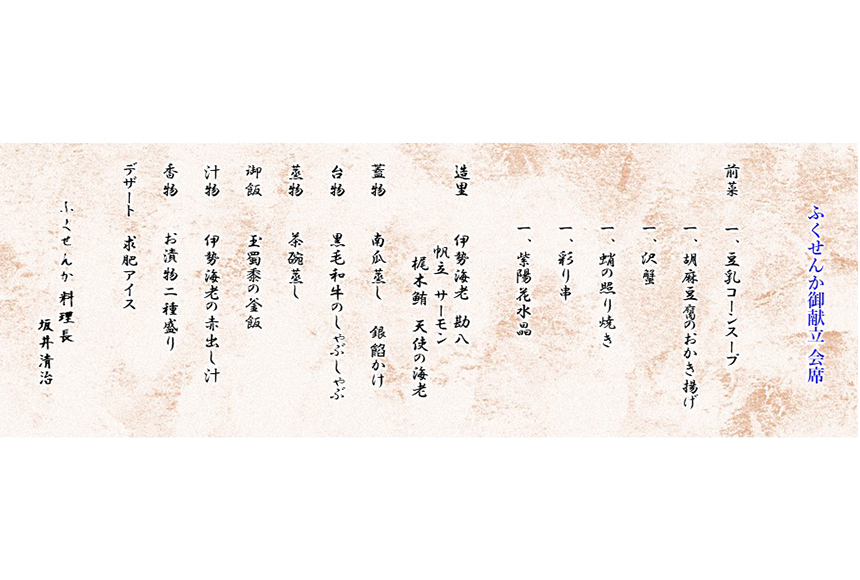 ふくせんか御献立 会席
前菜 一、豆乳コーンスープ
一、胡麻豆腐のおかき揚げ
一、沢蟹
一、蛸の照り焼き
一、彩り串
一、紫陽花水晶
造里 伊勢海老 勘八
帆立 サーモン
梶木鮪 天使の海老
蓋物 南瓜蒸し 銀餡かけ
台物 黒毛和牛のしゃぶしゃぶ
蒸物 茶碗蒸し
御飯 玉蜀黍の釜飯
汁物 伊勢海老の赤出し汁
香物 お漬物二種盛り
デザート 求肥アイス
ふくせんか 料理長
坂井清治